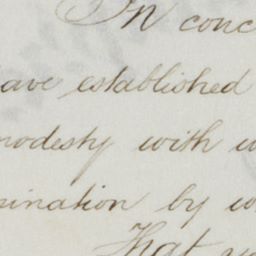 In conc
ave established
modesty with w
ination by w
That